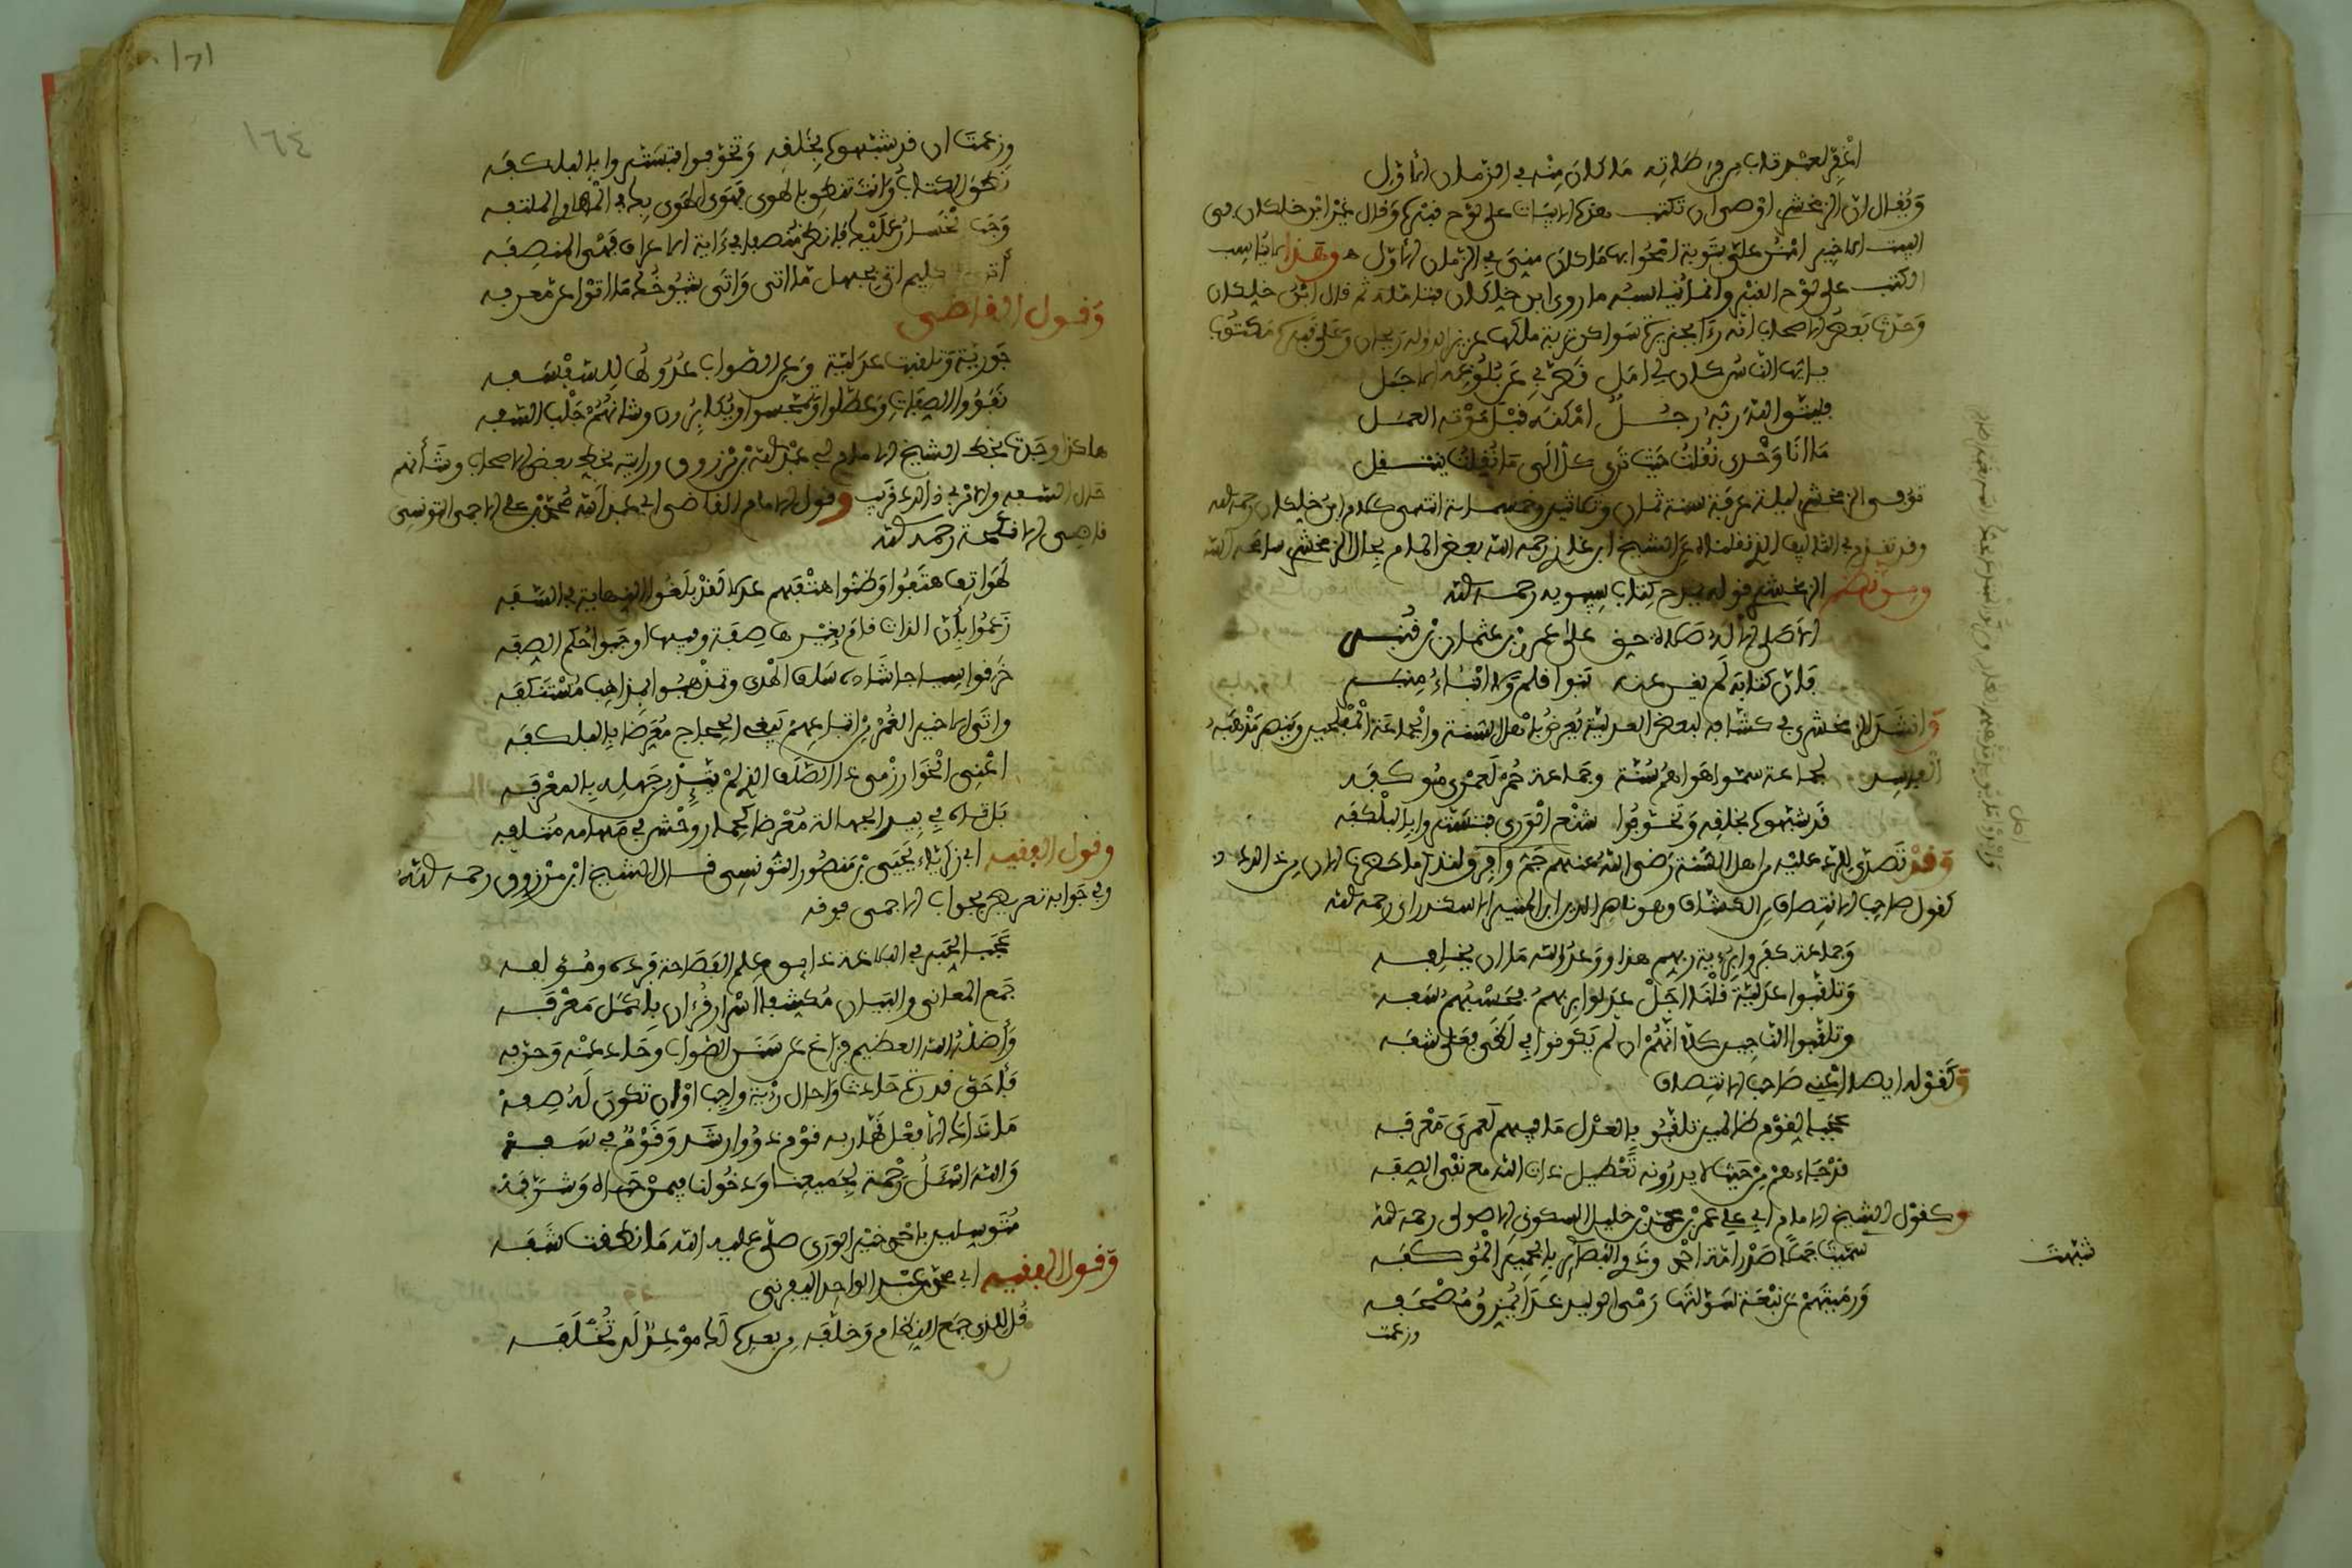 اغفر لعبد تاب من فرطاته ما كان منه في الزمان الأول
ويقال ان الزمخشري اوصى ان تكتب هذه الابيات على لوح قبره وقال غير ابن خلكان في
البيت الاخير امنن علي بتوبة امحوا بها ما كان مني في الزمان الأول ه وهذا لا يناسب
الكتب على لوح القبر وانما يناسبه ما روى ابن خلكان ثم قال ابن خلكان
وحدثنا بعض الاصحاب انه رءا بجزيرة سواكن تربة ملكها عزيز الدولة ريحان وعلى قبره مكتوبا
يا ايها الناس كان لي امل قصر بي عن بلوغه الاجل
فليتق الله ربه رجل امكنه قبل موته العمل
ما انا وحدي نقلت حيث ترى كل الى ما نقلت ينتقل
توفي الزمخشري ليلة عرفة سنة ثمان وثلاثين وخمسمائة انتهى كلام ابن خلكان رحمه الله
وقد تقدم في التاليف الذي نقلناه عن الشيخ ابن غازي رحمه الله بعض المام بحال الزمخشري سامحه الله
ومن نظم الزمخشري قوله يمدح كتاب سيبويه رحمه الله
الا صلى الاله صلاة حق على عمرو بن عثمان بن قنبر
فان كتابه لم يغن عنه بنوا قلم ولا ابناء منبر
وانشد الزمخشري في كشافه لبعض العدلية يعرض باهل السنة والجماعة المفلحين وينصر مذهبه
الفاسد لجماعة سموا هواهم سنة وجماعة حمر لعمري موكفه
قد شبهوه بخلقه وتخوفوا شنع الورى فتستروا بالبلكفه
وقد تصدى للرد عليه من اهل السنة رضي الله عنهم جم وافر ولنذكر ما حضرنا الان من الردود
كقول صاحب الانتصاف من الكشاف وهو ناصر الدين ابن المنير الاسكندراني رحمه الله
وجماعة كفروا برؤية ربهم هذا ووعد الله ما ان يخلفه
وتلقبوا عدلية قلنا اجل عدلوا بربهم فحسبهم سفه
وتلقبوا الناجين كلا انهم ان لم يكونوا في لظى فعلى شفه
وكقوله ايضا اعني صاحب الانتصاف
عجبا لقوم ظالمين تلقبوا بالعدل ما فيهم لعمري معرفه
قد جاءهم من حيث لا يدرونه تعطيل ذات الله مع نفي الصفه
وكقول الشيخ الامام ابي علي عمر بن محمد بن خليل السكوني الاصولي رحمه الله
شبهت
سميت جهلا صدر امة احمد وذوي البصائر بالحمير الموكفه
ورميتهم عن نبعة سولتها رمي الوليد غدا يمزق مصحفه
وزعمت
اصل
١٦٤
وزعمت ان قد شبهوه بخلقه وتخوفوا فتستروا بالبلكفه
نطق الكتاب وانت تنطق بالهوى فهوى الهوى بك في المهاوي المتلفه
وجب الخسار عليك فانظر منصفا في ءاية الاعراف فهي المنصفه
أترى الكليم اتى بجهل ما اتى واتى شيوخك ما اتوا عن معرفه
وقول القاضي
جورية وتلقبت عدلية وعن الصواب عدولها للسفسفه
نفووا الصفات وعطلوا وتمجسوا ويكابرون وشانهم جلب السفه
هاكذا وجدت بخط الشيخ الامام ابي عبد الله بن مرزوق ورايته بخط بعض الاصحاب وشأنهم
خدن السفه والامر في ذالك قريب وقول الامام القاضي ابي عبد الله محمد بن علي الاجمي التونسي
قاضي الانكحة رحمه الله
لهواتف هتفوا وظنوا هتفهم عدلا لقد بلغوا النهاية في السفه
زعموا بأن الذات قام بغيرها صفة وفيها اوجبوا حكم الصفه
خرقوا سياجا شاده سلف الهدى وتمذهبوا بمذاهب مستنكفه
واتى الاخير الغمر من اتباعهم يبغي الحجاج معرضا بالبلكفه
اعني الخوارزمي ذا الصلف الذي لم يثن من جهله بالمعرفه
بل تاه في بيد الجهالة معرضا كحمار وحش في مهامه متلفه
وقول الفقيه ابي زكرياء يحيى بن منصور التونسي قال الشيخ ابن مرزوق رحمه الله
وفي جوابه تعريض بجواب الاجمي فوقه
عجبا لحبر في البلاغة ذايق علم الفصاحة فرده ومؤلفه
جمع المعاني والبيان مكشفا اسرار قرءان باكمل معرفه
وأضله الله العظيم فزاغ عن سنن الصواب وحاد عنه وحرفه
فأحق قدرة حادث واحال رؤية واجب اوان تكون له صفه
ما ذاك الا فعل قهار به قوم ذووا رشد وقوم في سفه
والله اسئل رحمة لجميعنا ودخولنا فيمن حباه وشرفه
متوسلين باحمد خير الورى صلى عليه الله ما نطقت شفه
وقول الفقيه ابي محمد عبد الواحد اليفرني
قل للذي جمع النظام وخلفه من بعده لك موعد لن تخلفه